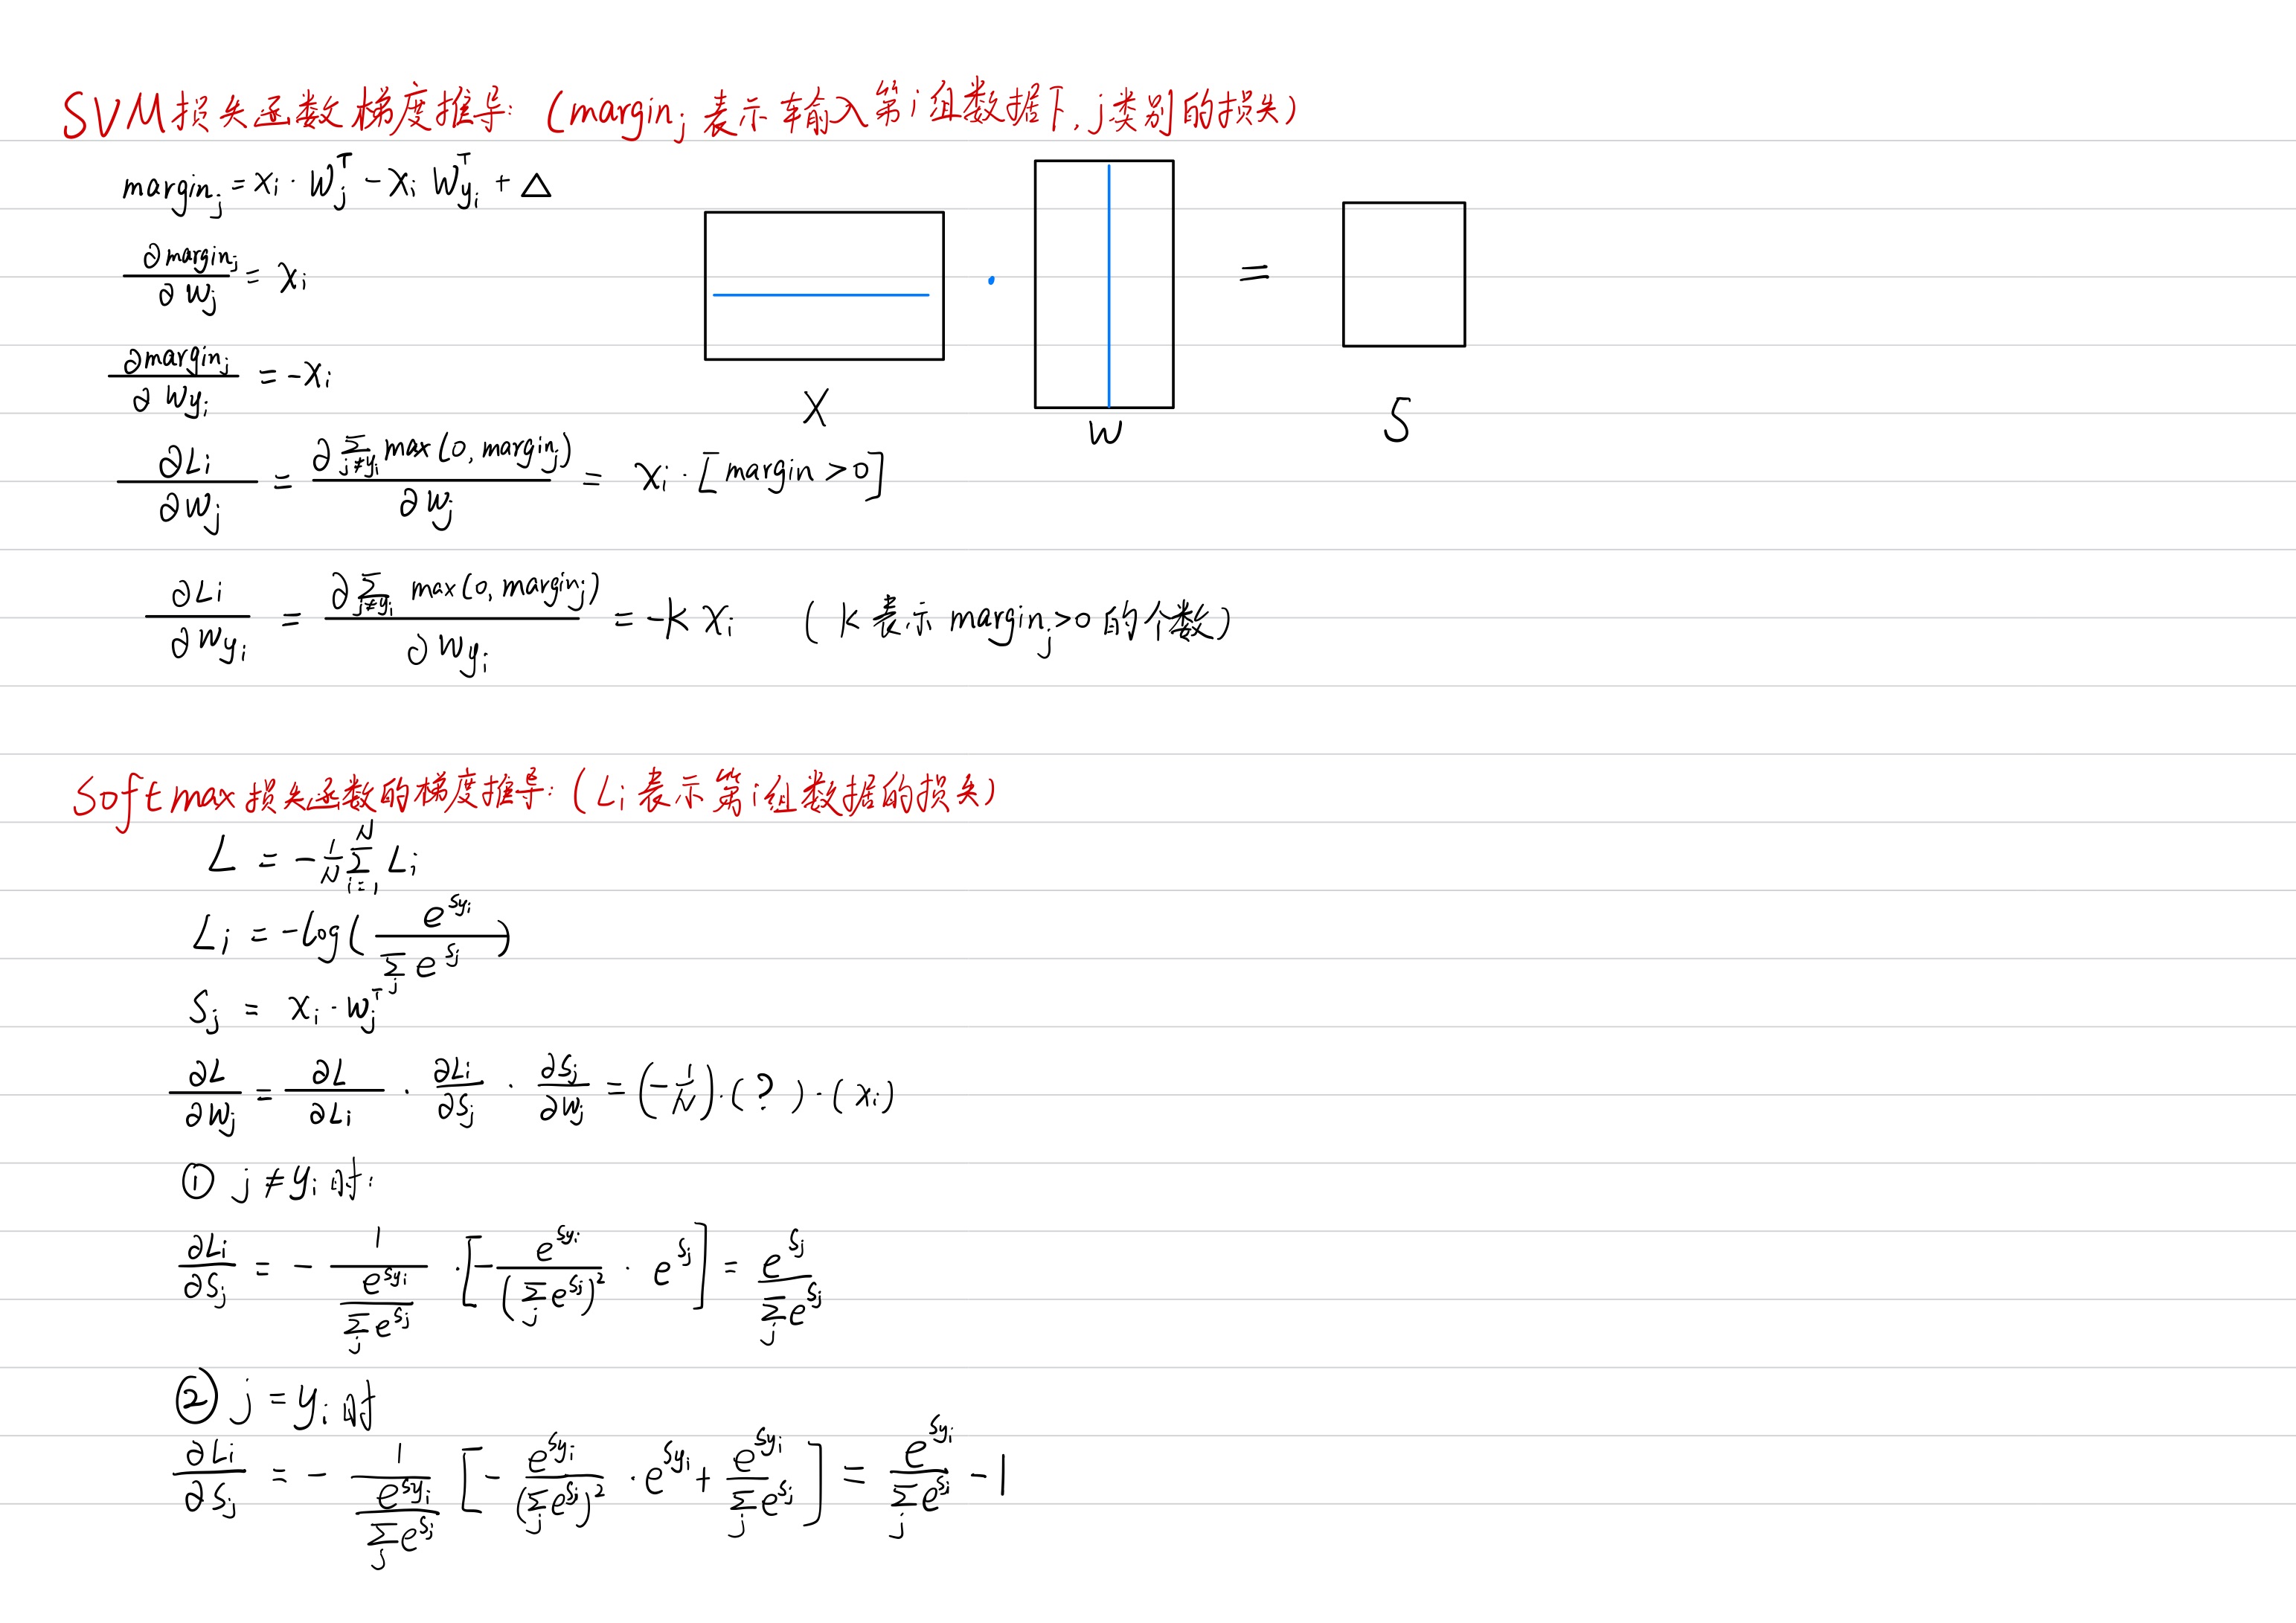 SVM损失函数梯度推导:(margin_j 表示输入第i组数据下,j类别的损失)
margin_j = x_i · W_j^T - x_i W_{y_i}^T + Δ
∂margin_j / ∂W_j = x_i
∂margin_j / ∂W_{y_i} = -x_i
X · W = S
∂L_i / ∂W_j = ∂Σ_{j≠y_i} max(0, margin_j) / ∂W_j = x_i · [margin > 0]
∂L_i / ∂W_{y_i} = ∂Σ_{j≠y_i} max(0, margin_j) / ∂W_{y_i} = -k x_i (k表示 margin_j>0 的个数)
Softmax损失函数的梯度推导:(L_i 表示第i组数据的损失)
L = -1/N Σ_{i=1}^N L_i
L_i = -log( e^{s_{y_i}} / Σ_j e^{s_j} )
S_j = x_i · w_j^T
∂L / ∂W_j = ∂L / ∂L_i · ∂L_i / ∂S_j · ∂S_j / ∂W_j = (-1/N) · (?) · (x_i)
① j≠y_i 时:
∂L_i / ∂S_j = - 1 / (e^{s_{y_i}} / Σ_j e^{s_j}) · [- e^{s_{y_i}} / (Σ_j e^{s_j})^2 · e^{s_j}] = e^{s_j} / Σ_j e^{s_j}
② j=y_i 时
∂L_i / ∂S_j = - 1 / (e^{s_{y_i}} / Σ_j e^{s_j}) [- e^{s_{y_i}} / (Σ_j e^{s_j})^2 · e^{s_{y_i}} + e^{s_{y_i}} / Σ_j e^{s_j}] = e^{s_{y_i}} / Σ_j e^{s_j} - 1